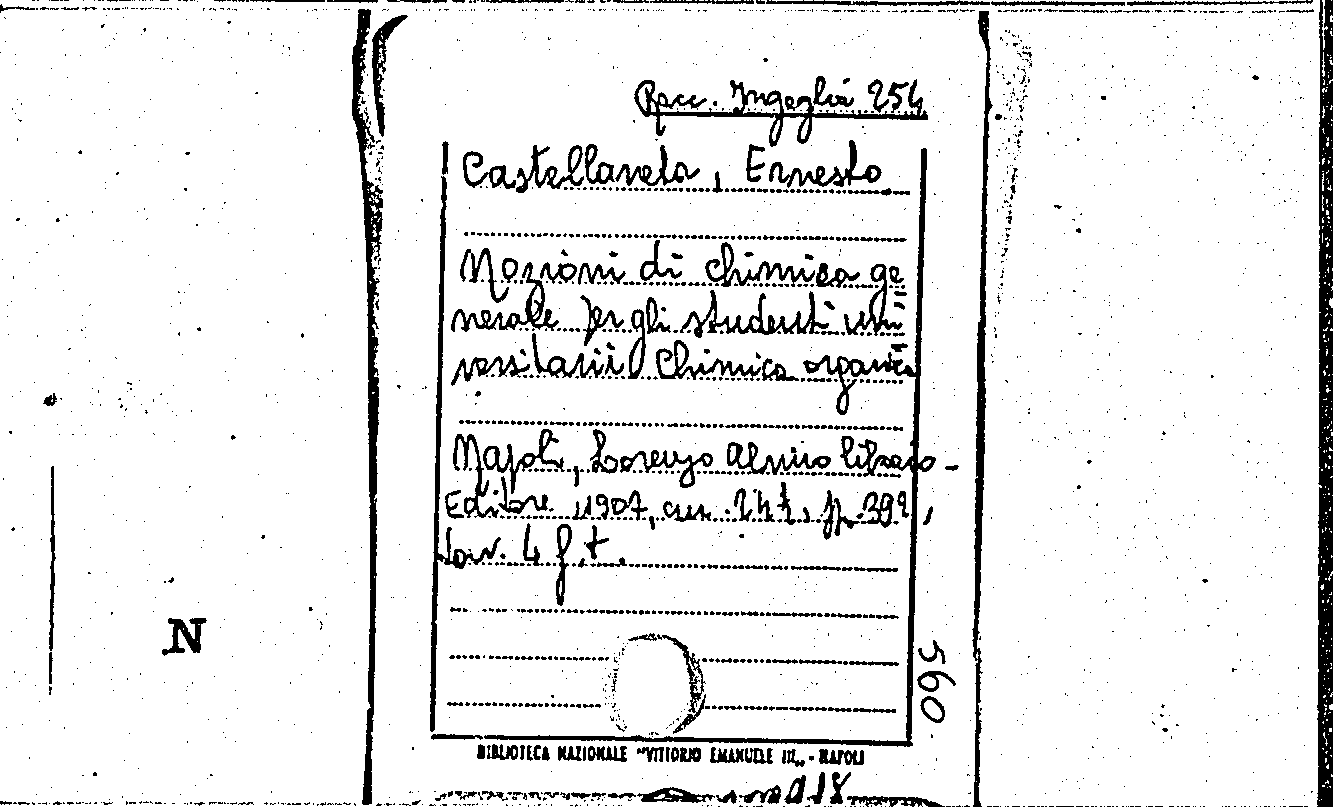 Racc. Ingeglia 254
Castellaneta, Ernesto
Nozioni di chimica ge
nerale per gli studenti uni
versitarii Chimica organica
Napoli, Lorenzo Alvino libraio-
Editore, 1907, cm. 24½, pp. 392,
tav. 4 f.t.
N
560
BIBLIOTECA NAZIONALE "VITTORIO EMANUELE III„ - NAPOLI